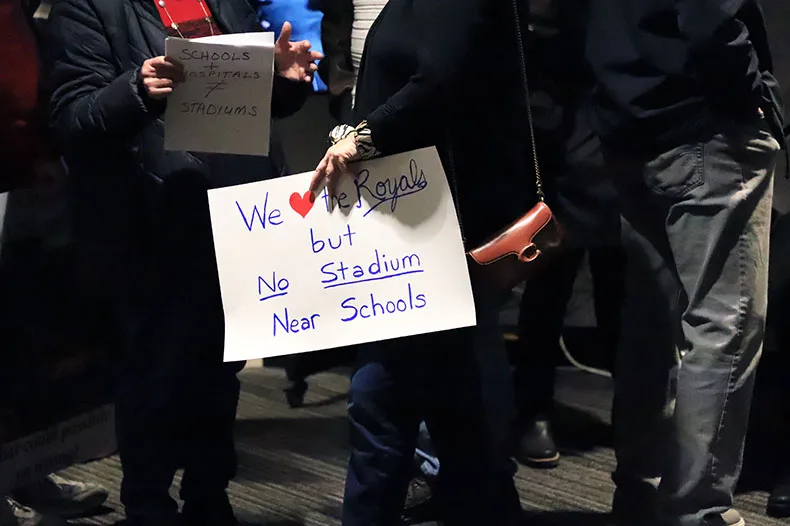 SCHOOLS
+
HOSPITALS
≠
STADIUMS
We ❤ the Royals
but
No Stadium
Near Schools